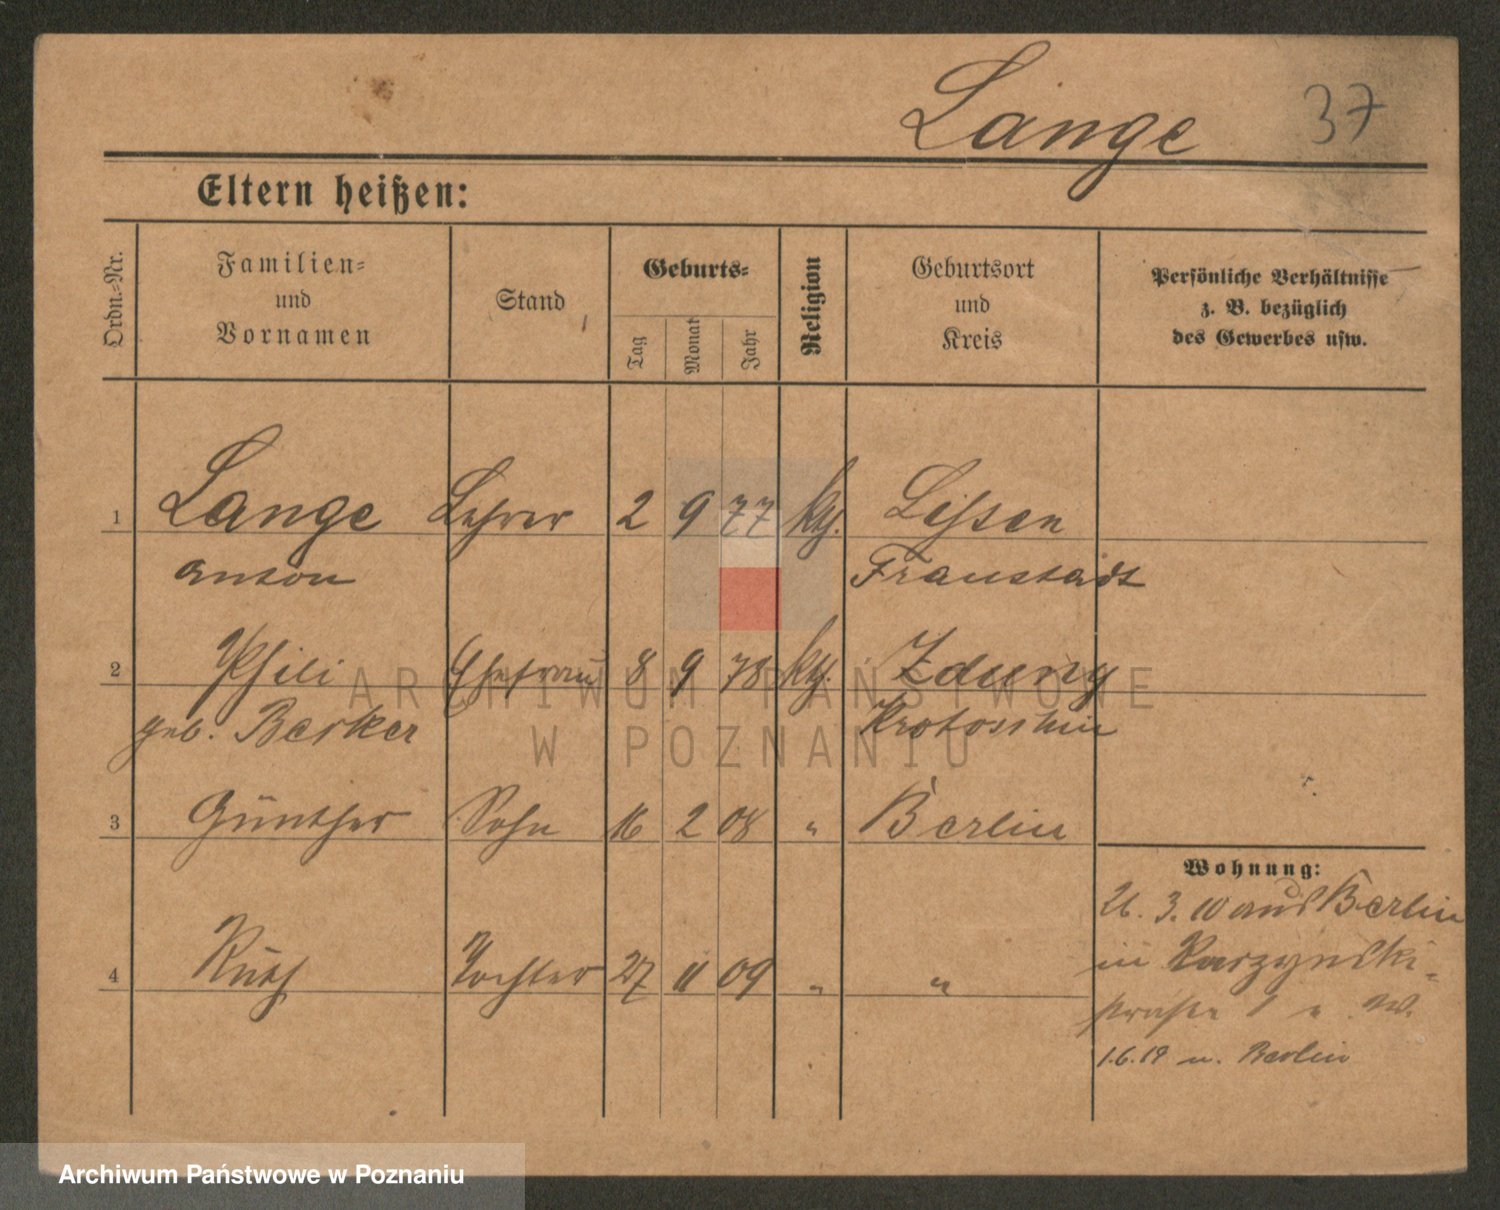 Lange 37
Eltern heißen:
Ordn.-Nr.
Familien- und Vornamen
Stand
Geburts-
Tag
Monat
Jahr
Religion
Geburtsort und Kreis
Persönliche Verhältnisse
z. B. bezüglich
des Gewerbes usw.
1 Lange Lehrer 2 9 77 kth. Lissen
Anton Fraustadt
2 Ehefrau 8 9 78 kth. Zduny
geb. Krotoschin
3 Günther Sohn 16 2 08 " Berlin
Wohnung:
3. 10 aus Berlin
4 Ruth Tochter 27 11 09 " "
in
straße 1
Berlin
ARCHIWUM PAŃSTWOWE
W POZNANIU
Archiwum Państwowe w Poznaniu